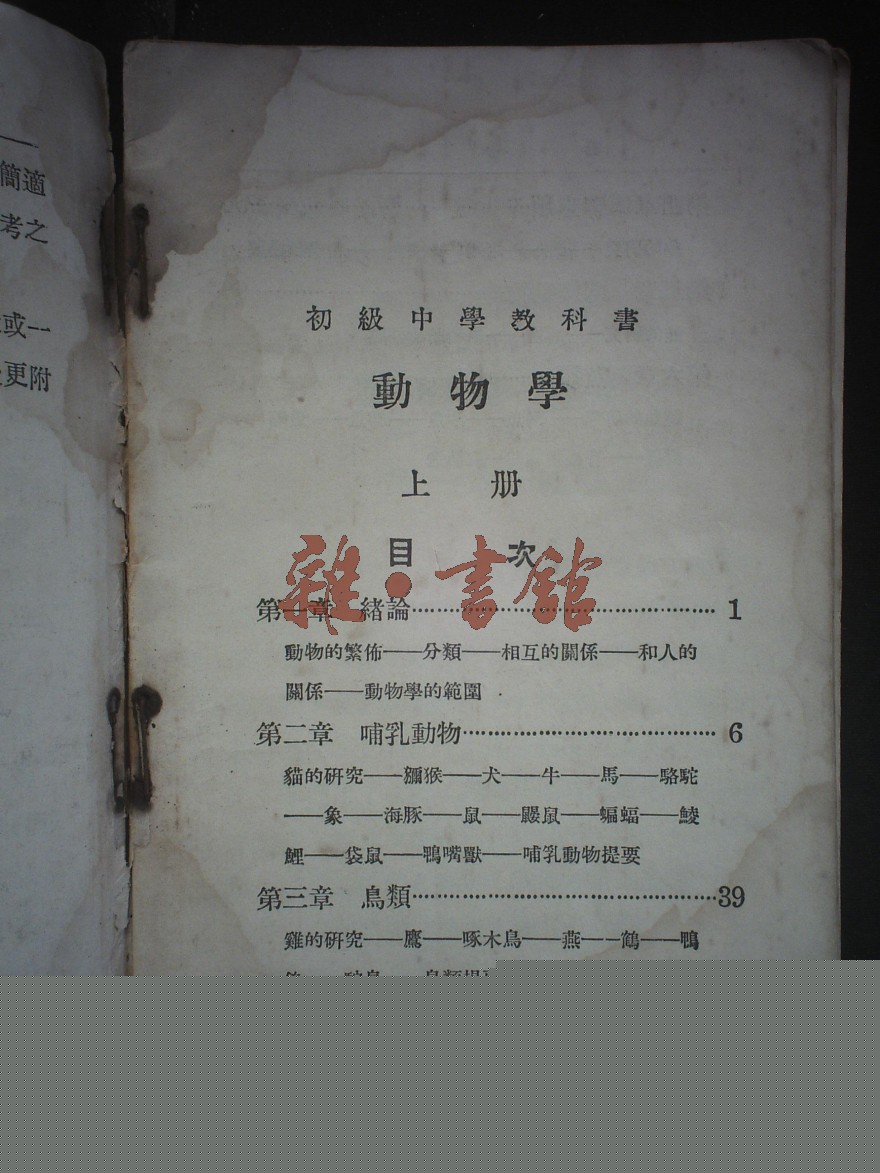 簡適
考之
或一
更附
初級中學教科書
動物學
上册
目次
雜·書館
第一章 緒論…………………………………… 1
動物的繁佈——分類——相互的關係——和人的
關係——動物學的範圍
第二章 哺乳動物…………………………… 6
貓的研究——獼猴——犬——牛——馬——駱駝
——象——海豚——鼠——鼴鼠——蝙蝠——鯪
鯉——袋鼠——鴨嘴獸——哺乳動物提要
第三章 鳥類……………………………………39
雞的研究——鷹——啄木鳥——燕——鶴——鴨